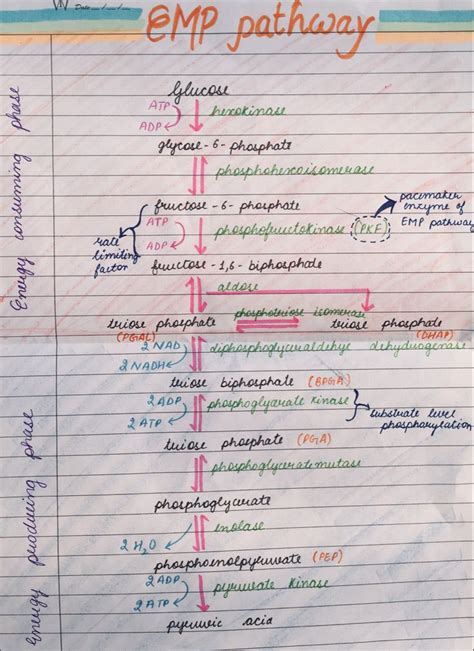 Date _/_/_
EMP pathway
Energy consuming phase
Glucose
ATP
ADP
hexokinase
glycose-6-phosphate
phosphohexoisomerase
fructose-6-phosphate
ATP
ADP
phosphofructokinase (PKF)
pacemaker
enzyme of
EMP pathway
rate
limiting
factor
fructose-1,6-biphosphate
aldose
phosphotriose isomerase
triose phosphate
(PGAL)
triose phosphate
(DHAP)
2 NAD
2 NADH
diphosphoglyceraldehye dehydrogenase
Energy producing phase
triose biphosphate (BPGA)
2 ADP
2 ATP
phosphoglycerate kinase
substrate level
phosphorylation
triose phosphate (PGA)
phosphoglyceratemutase
phosphoglycerate
2 H2O
enolase
phosphoenolpyruvate (PEP)
2 ADP
2 ATP
pyruvate kinase
pyruvic acid